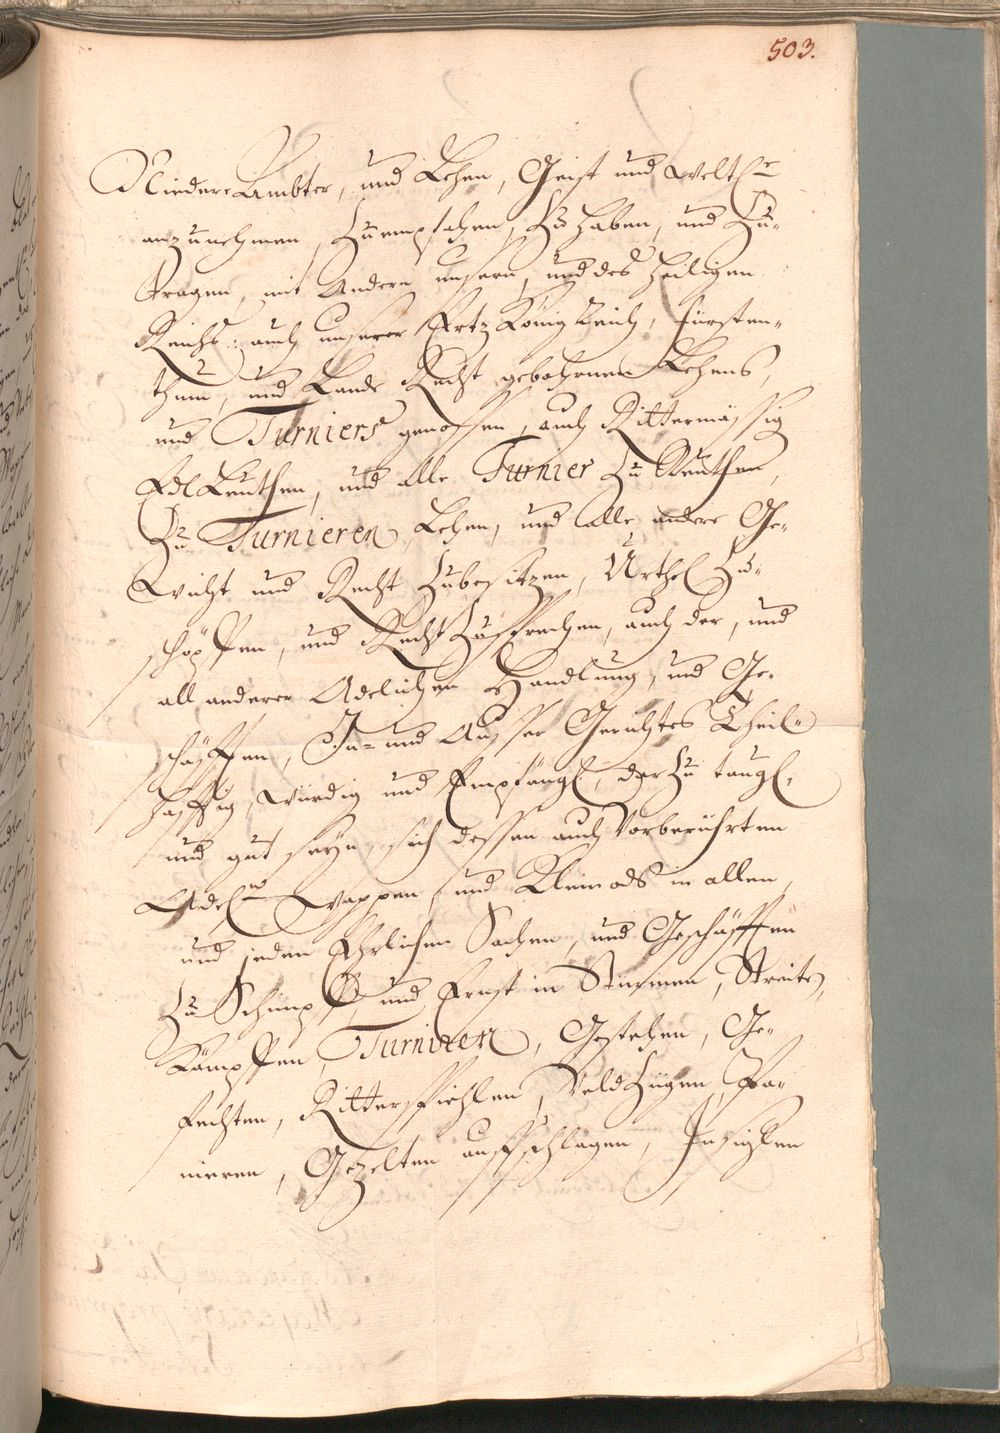 503.
Niedere Ambter, und Lehen, Geist und weltl:r
anzunehmen, Zuempfahen, Zu haben, und Zu-
tragen, mit Andern unsern, und des heiligen
Reichs, auch unserer Ertz Königreich, Fürsten-
thum, und Lande Recht gebohrnen Lehens,
und Turniers genossen, auch Rittermässig
Edl Leuthen, und alle Turnier Zu Reuthen,
Zu Turnieren, Lehen, und alle andere Ge-
wicht und Recht Zubesitzen, Urthel Zu-
schöpffen, und Recht Zusprechen, auch der, und
all anderer Adelichen Handlung, und Ge-
schäfften, In- und Ausser Gerichtes Theil-
hafftig, würdig und Empfängl:, darzu taugl:
und gut seyn, sich dessen auch Vorberührten
Adel:n Wappen, und Kleinods in allen,
und jeden Ehrlichen Sachen, und Geschäfften
Zu Schimpff, und Ernst in Stürmen, Streiten,
Kämpffen, Turniren, Gestehen, Ge-
fechten, Ritterspiehlen, Veldzügen, Pa-
nieren, Gezelten auffschlagen, Insiglen